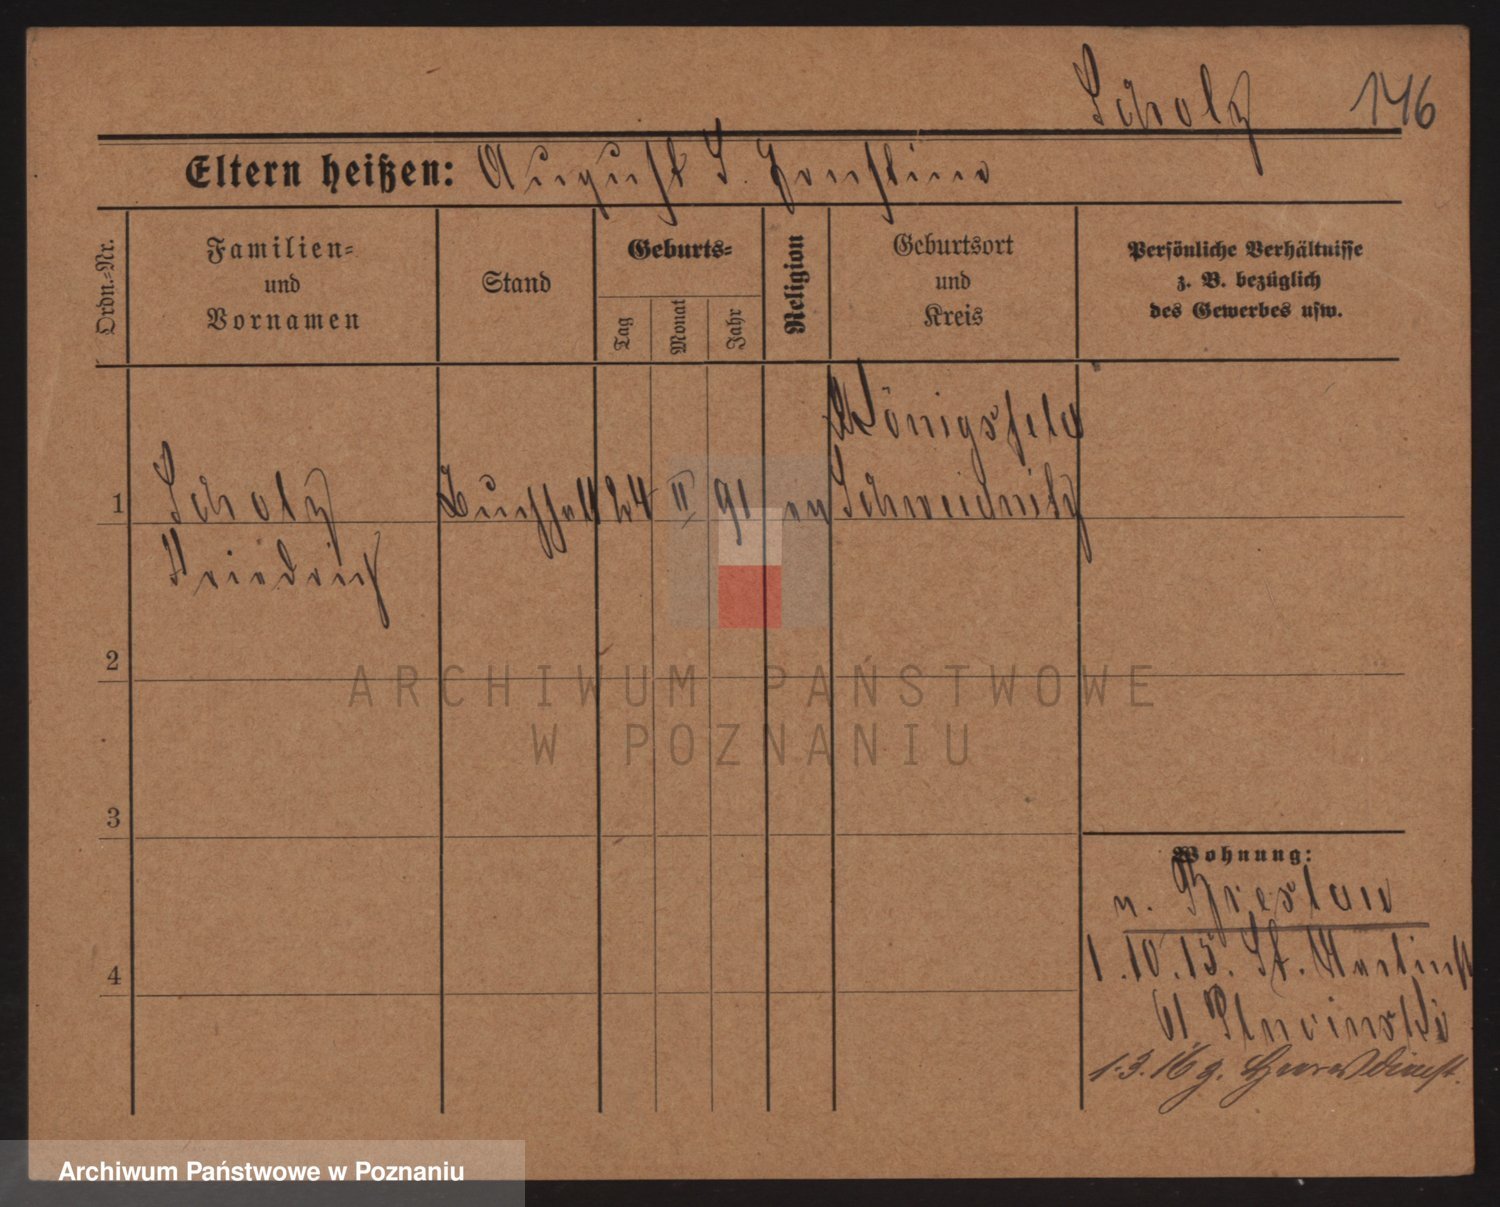 Scholz 146
Eltern heißen: August S.
Ordn.-Nr.
Familien-
und
Vornamen
Stand
Geburts-
Tag
Monat
Jahr
Religion
Geburtsort
und
Kreis
Persönliche Verhältnisse
z. B. bezüglich
des Gewerbes usw.
Königsfeld
1 Scholz Buchhalt 24 II 91 ev Schweidnitz
Friedrich
2
3
4
Wohnung:
v. Breslau
1.10.15. St. Martinst
61
1.3.16 z. Heeresdienst.
ARCHIWUM PAŃSTWOWE
W POZNANIU
Archiwum Państwowe w Poznaniu